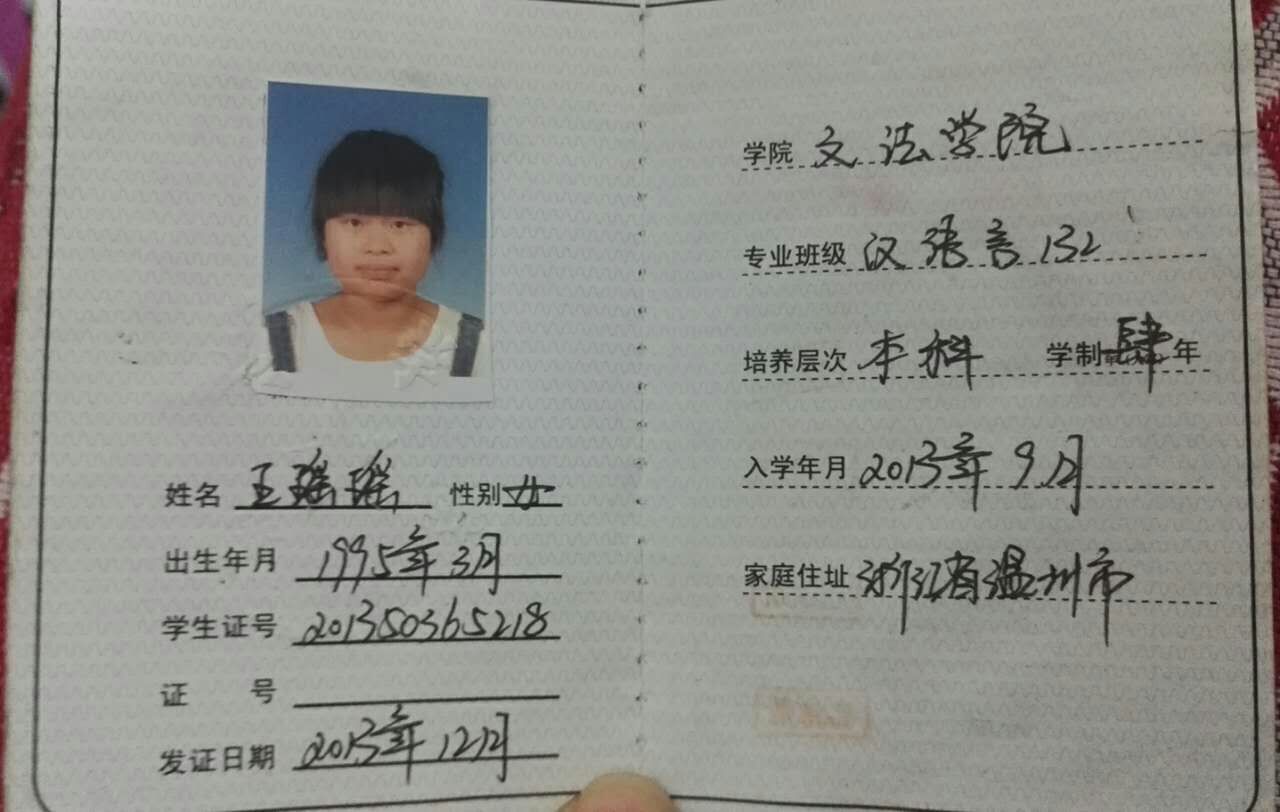 姓名 王瑶瑶 性别 女
出生年月 1995年3月
学生证号 201350365218
证 号
发证日期 2013年12月
学院 文法学院
专业班级 汉语言132
培养层次 本科 学制 肆 年
入学年月 2013年9月
家庭住址 浙江省温州市